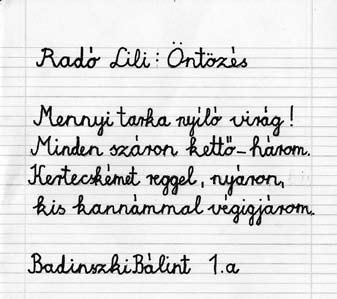 Radó Lili: Öntözés
Mennyi tarka nyíló virág!
Minden száron kettő-három.
Kertecskémet reggel, nyáron,
kis kannámmal végigjárom.
Badinszki Bálint 1.a